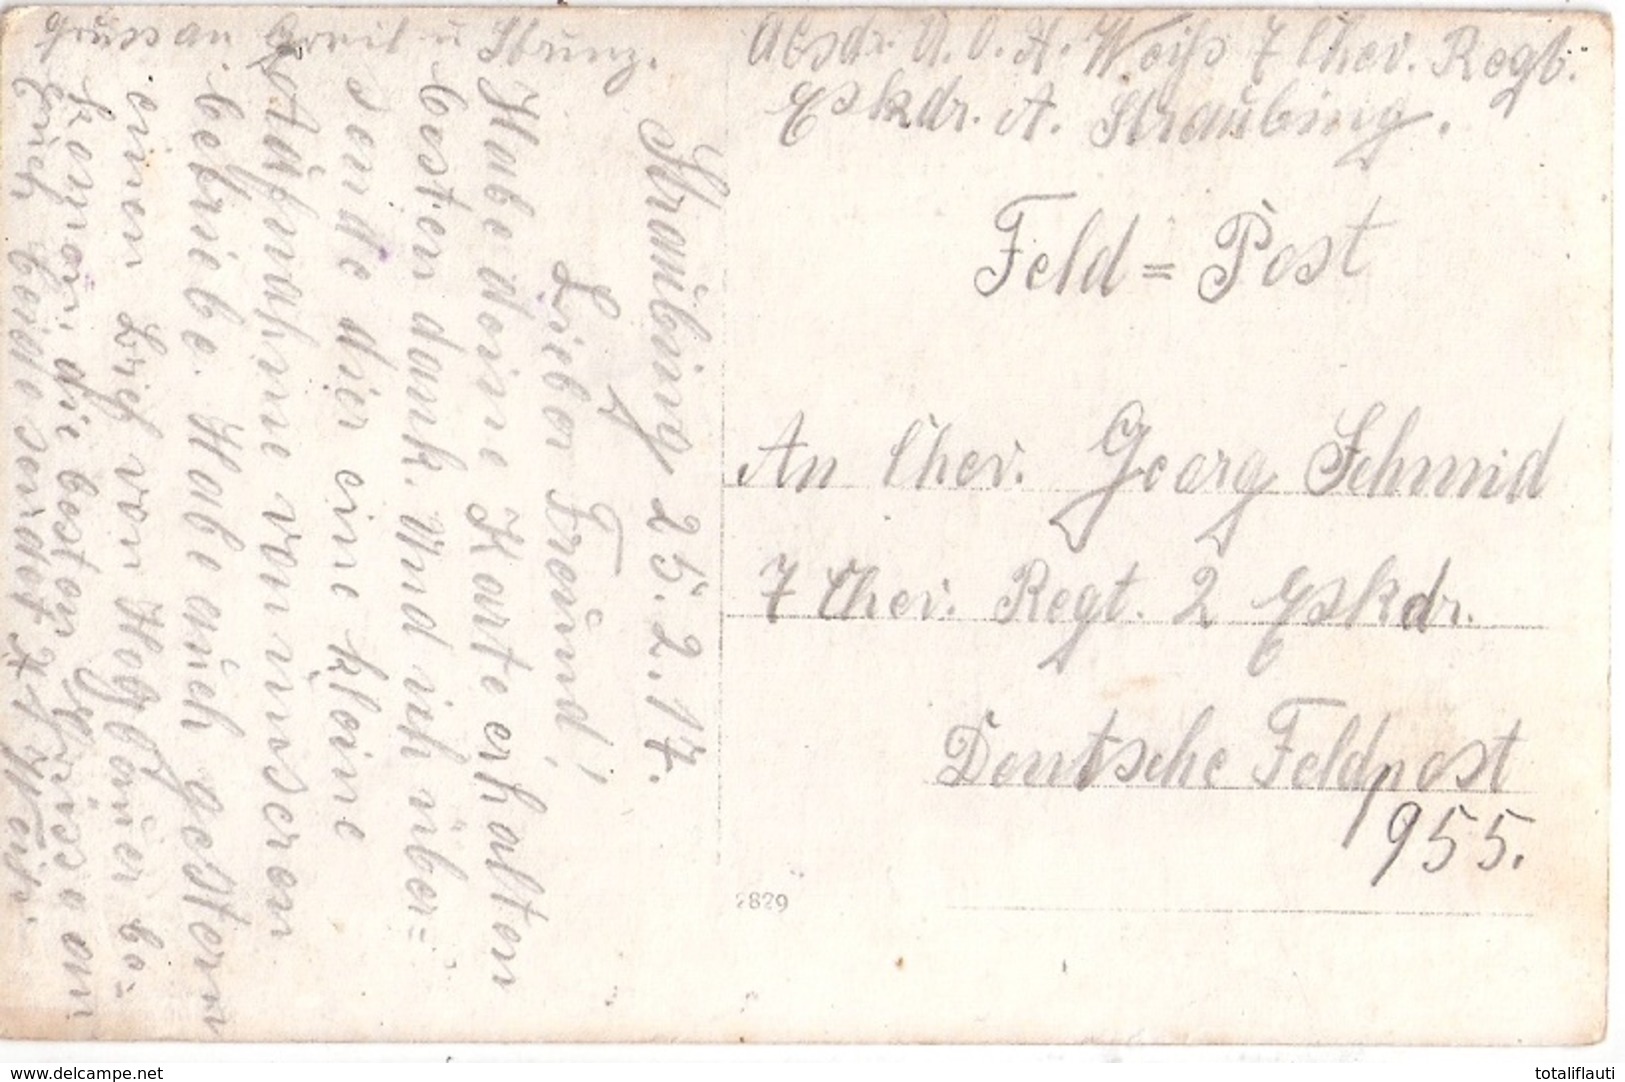 Absdr. U. O. A. Weiß 7 Chev. Regt.
Eskdr. A. Straubing.
Feld = Post
An Chev. Georg Schmid
7 Chev. Regt. 2 Eskdr.
Deutsche Feldpost
955.
2829
Straubing 25.2.17.
Lieber Freund!
Habe deine Karte erhalten
besten dank. Und ich über=
sende dier eine kleine
Aufnahme von unserem
betriebe. Habe auch gestern
einen brif von
die besten Grüse an
Euch beide sendet X Weiß
Gruss an u
www.delcampe.net
totaliflauti